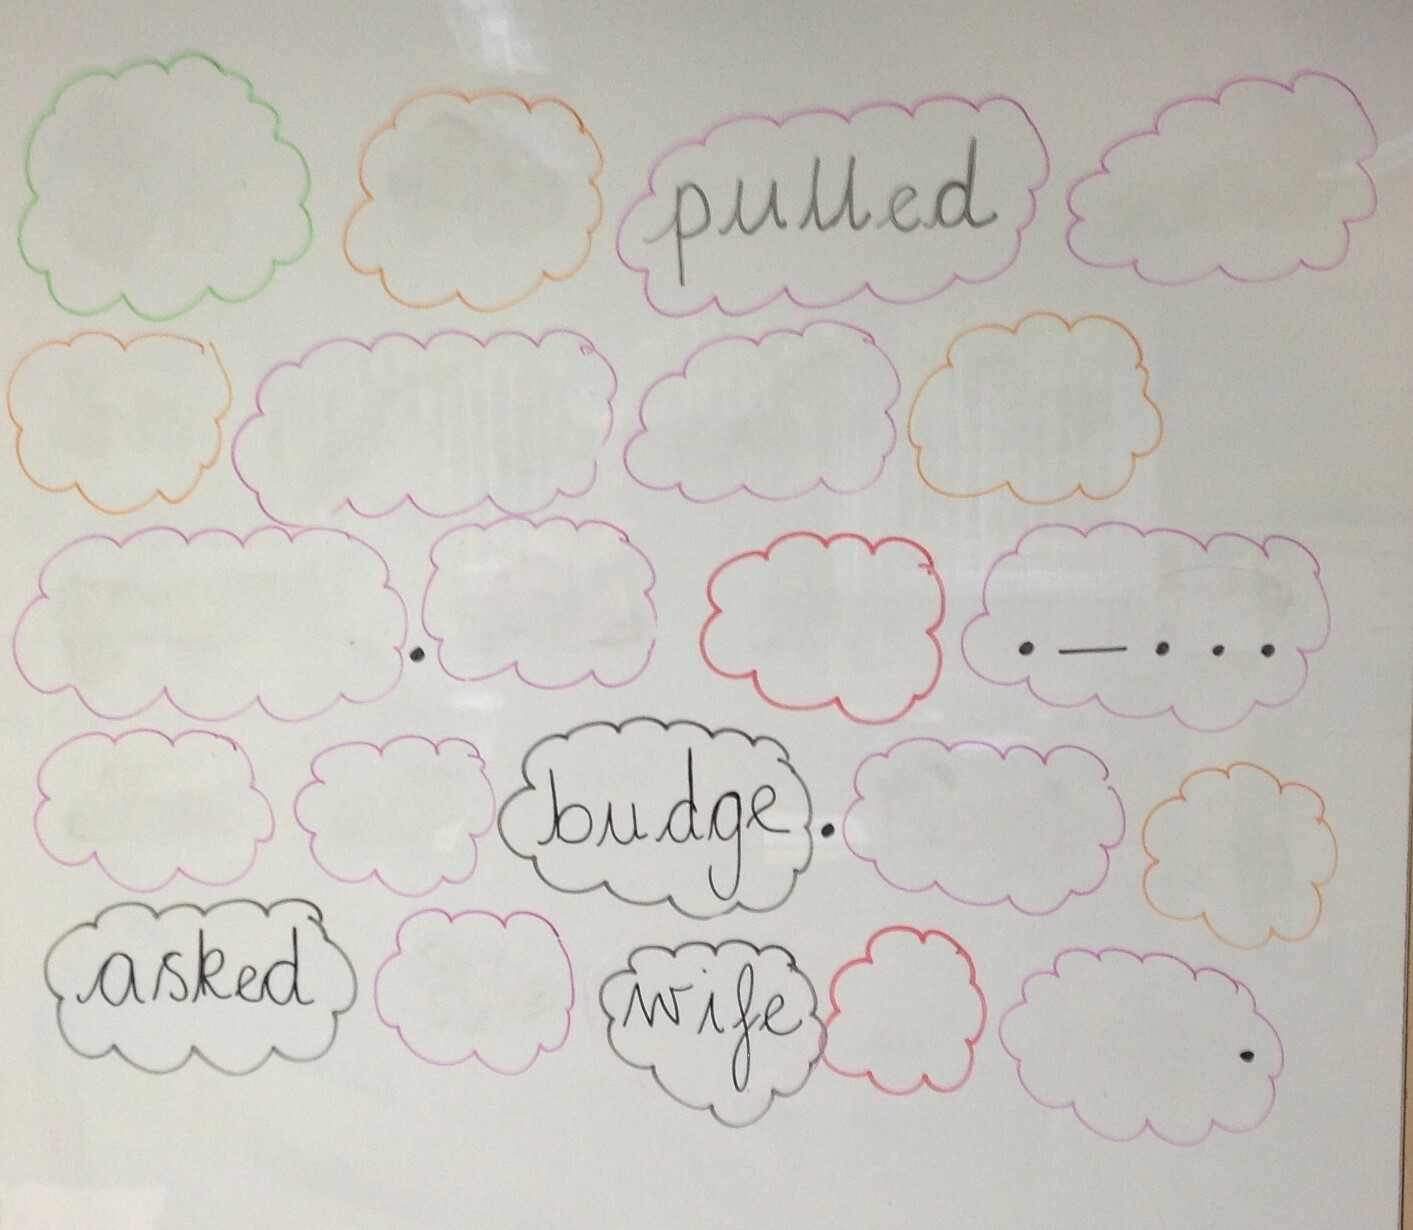 pulled
. . — . . .
budge.
asked wife .